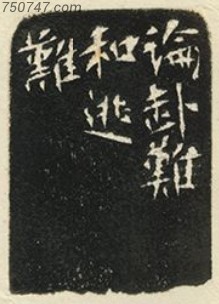 750747.com
論赴難
和逃
難